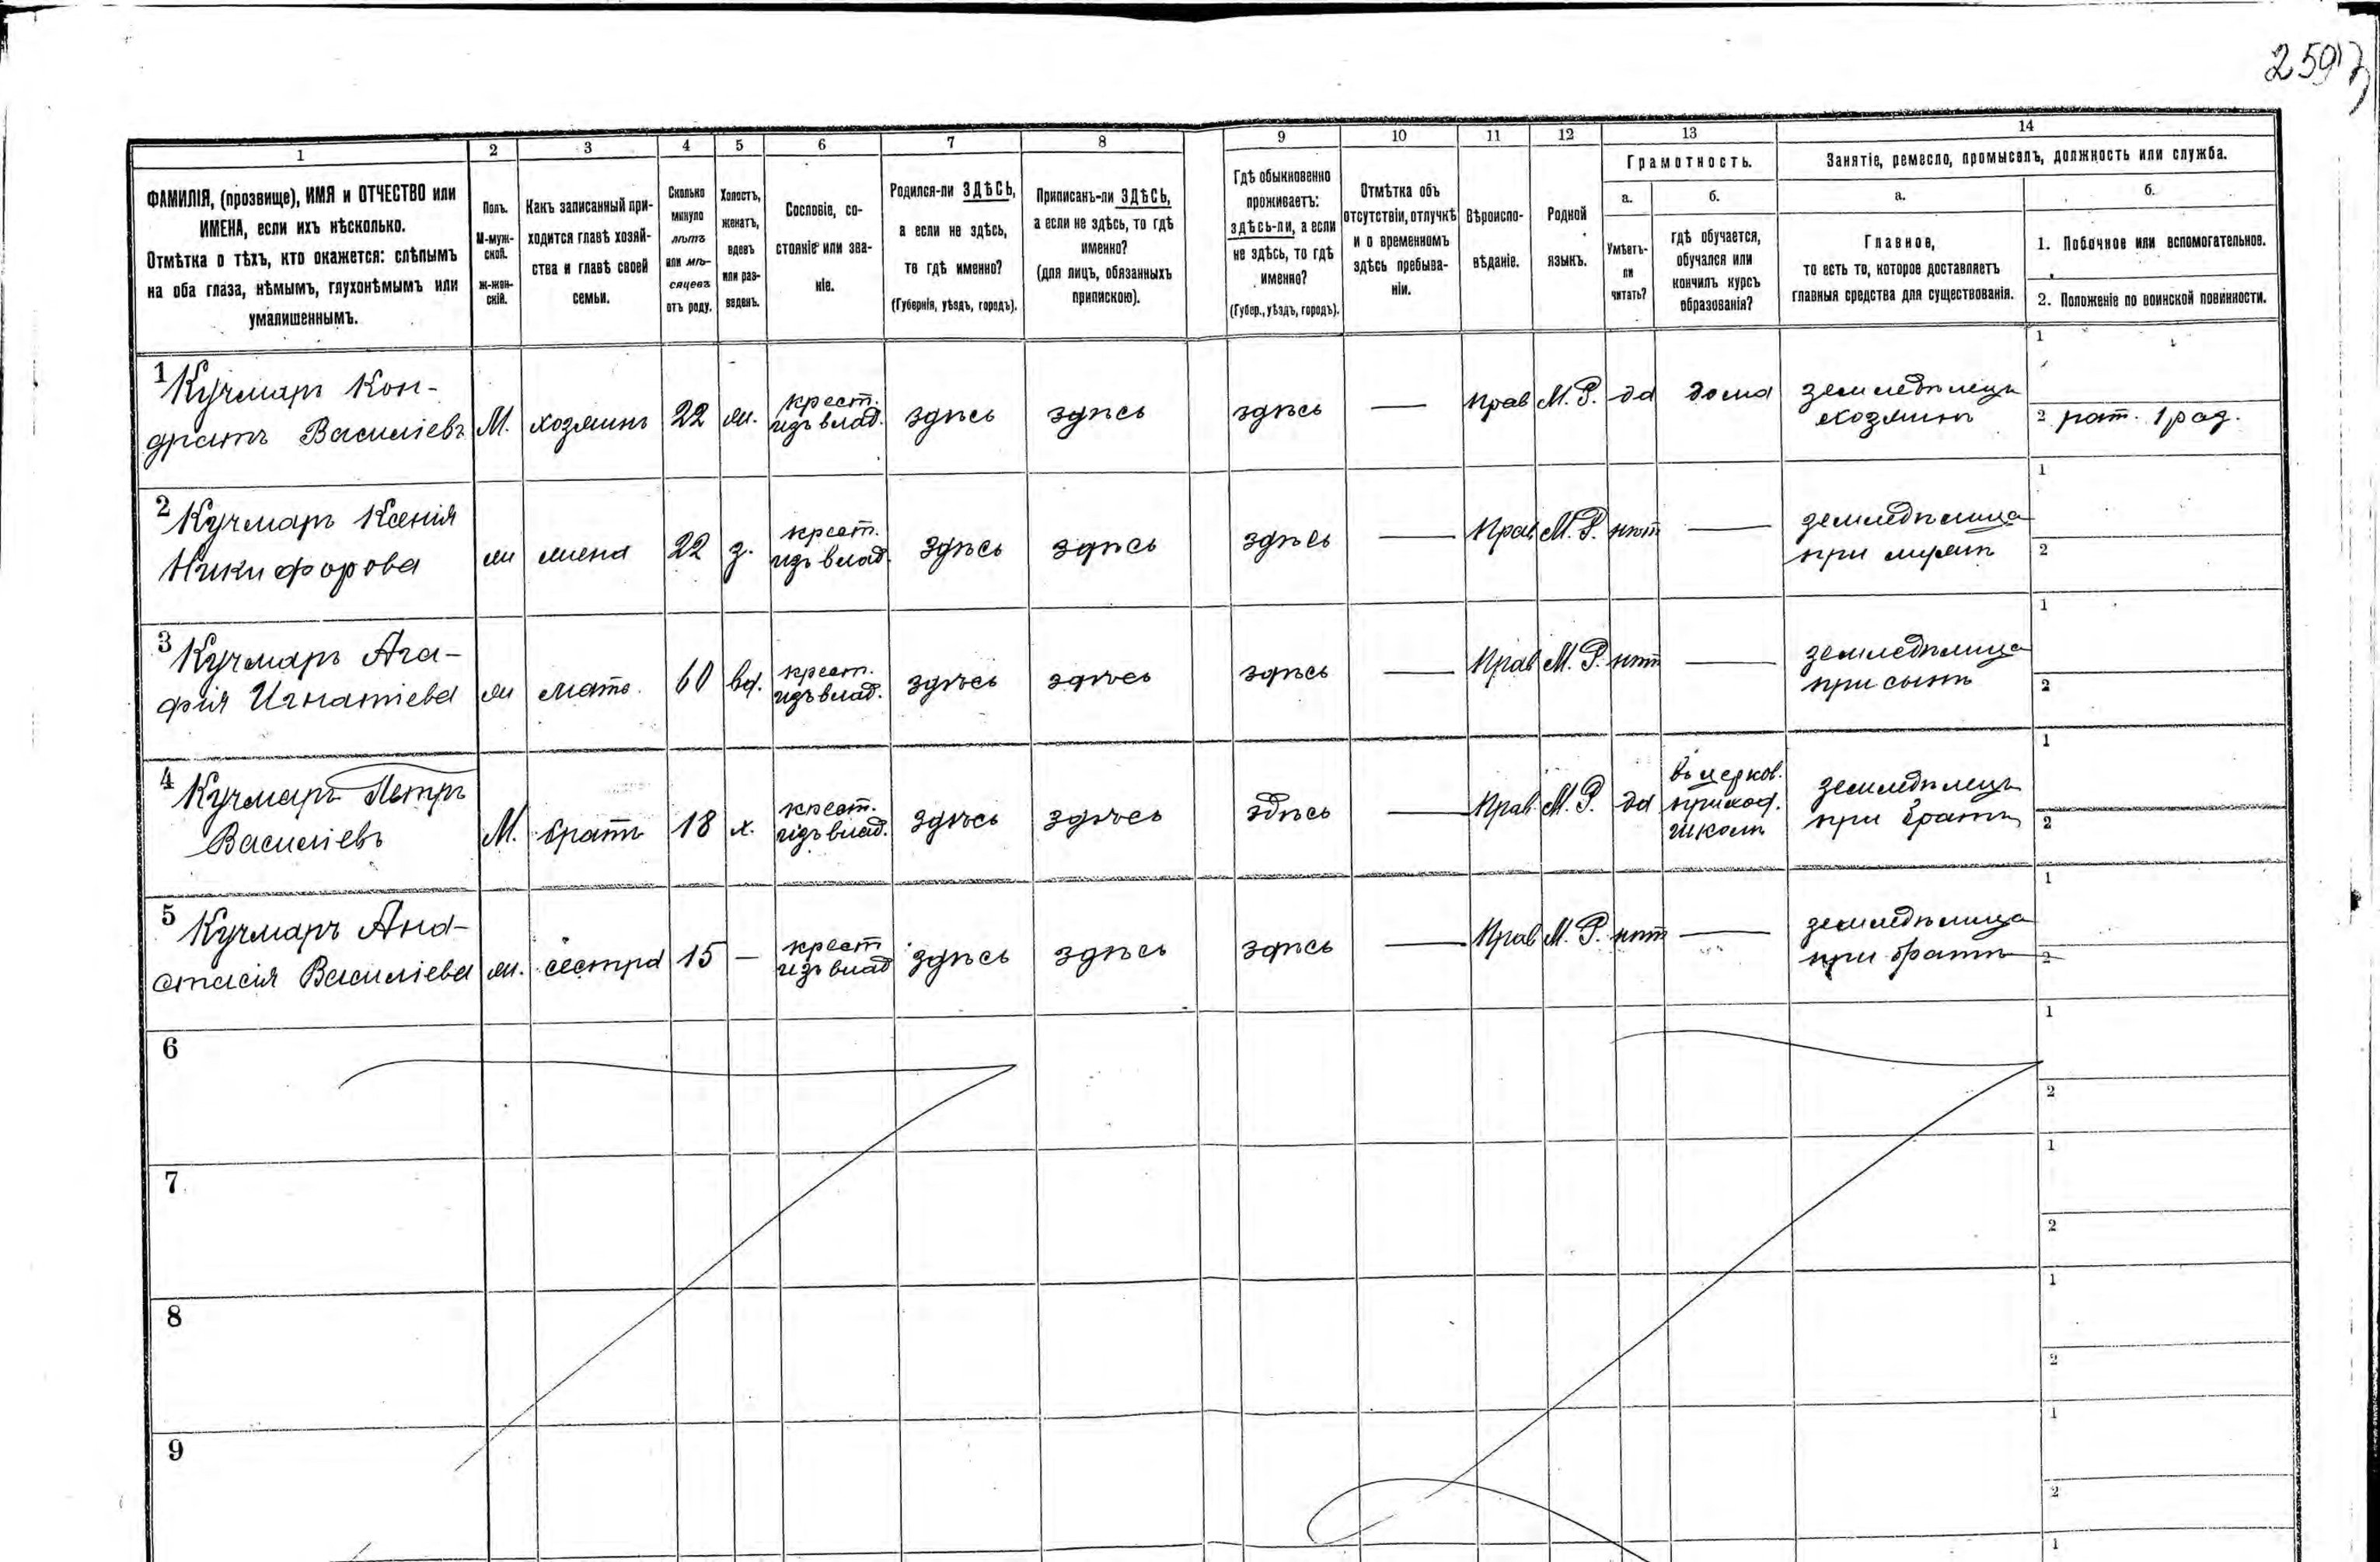 2597
1 2 3 4 5 6 7 8 9 10 11 12 13 14
ФАМИЛІЯ, (прозвище), ИМЯ и ОТЧЕСТВО или
ИМЕНА, если ихъ нѣсколько.
Отмѣтка о тѣхъ, кто окажется: слѣпымъ
на оба глаза, нѣмымъ, глухонѣмымъ или
умалишеннымъ.
Полъ.
М-муж-
ской.
Ж-жен-
скій.
Какъ записанный при-
ходится главѣ хозяй-
ства и главѣ своей
семьи.
Сколько
минуло
лѣтъ
или мѣ-
сяцевъ
отъ роду.
Холостъ,
женатъ,
вдовъ
или раз-
веденъ.
Сословіе, со-
стояніе или зва-
ніе.
Родился-ли ЗДѢСЬ,
а если не здѣсь,
то гдѣ именно?
(Губернія, уѣздъ, городъ).
Приписанъ-ли ЗДѢСЬ,
а если не здѣсь, то гдѣ
именно?
(для лицъ, обязанныхъ
припискою).
Гдѣ обыкновенно
проживаетъ:
здѣсь-ли, а если
не здѣсь, то гдѣ
именно?
(Губер., уѣздъ, городъ).
Отмѣтка объ
отсутствіи, отлучкѣ
и о временномъ
здѣсь пребыва-
ніи.
Вѣроиспо-
вѣданіе.
Родной
языкъ.
Грамотность.
а.
Умѣетъ-
ли
читать?
б.
гдѣ обучается,
обучался или
кончилъ курсъ
образованія?
Занятіе, ремесло, промыселъ, должность или служба.
а.
Главное,
то есть то, которое доставляетъ
главныя средства для существованія.
б.
1. Побочное или вспомогательное.
2. Положеніе по воинской повинности.
1 Кучмаръ Кон-
дратъ Василіевъ
М. хозяинъ 22 ж.
крест.
изъ влад.
здѣсь здѣсь здѣсь — Прав М. Р. да дома
земледѣлецъ
хозяинъ
1
2 рат. 1 раз.
2 Кучмаръ Ксенія
Никифорова
ж жена 22 з.
крест.
изъ влад.
здѣсь здѣсь здѣсь — Прав М. Р. нѣт —
земледѣлица
при мужѣ
1
2
3 Кучмаръ Ага-
фія Игнатіева
ж мать. 60 вд.
крест.
изъ влад.
здѣсь здѣсь здѣсь — Прав М. Р. нѣт —
земледѣлица
при сынѣ
1
2
4 Кучмаръ Петръ
Василіевъ
М. братъ 18 х.
крест.
изъ влад.
здѣсь здѣсь здѣсь — Прав. М. Р. да
въ церков.
приход.
школѣ
земледѣлецъ
при братѣ
1
2
5 Кучмаръ Ана-
стасія Василіева
ж. сестра 15 —
крест
изъ влад
здѣсь здѣсь здѣсь — Прав М. Р. нѣт —
земледѣлица
при братѣ
1
2
6
1
2
7
1
2
8
1
2
9
1
2
1